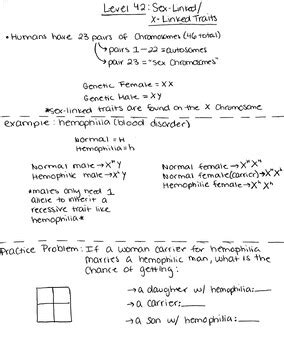 Level 42: Sex-Linked/
X-Linked Traits
• Humans have 23 pairs of Chromosomes (46 total)
→ pairs 1-22 = autosomes
→ pair 23 = "Sex Chromosomes"
Genetic Female = XX
Genetic Male = XY
*sex-linked traits are found on the X Chromosome
example: hemophilia (blood disorder)
Normal = H
Hemophilia = h
Normal male → XᴴY
Hemophilic male → XʰY
*males only need 1
allele to inherit a
recessive trait like
hemophilia*
Normal female → XᴴXᴴ
Normal female (carrier) → XᴴXʰ
Hemophilic female → XʰXʰ
Practice Problem: If a woman carrier for hemophilia
marries a hemophilic man, what is the
chance of getting:
→ a daughter w/ hemophilia:___
→ a carrier:___
→ a son w/ hemophilia:___